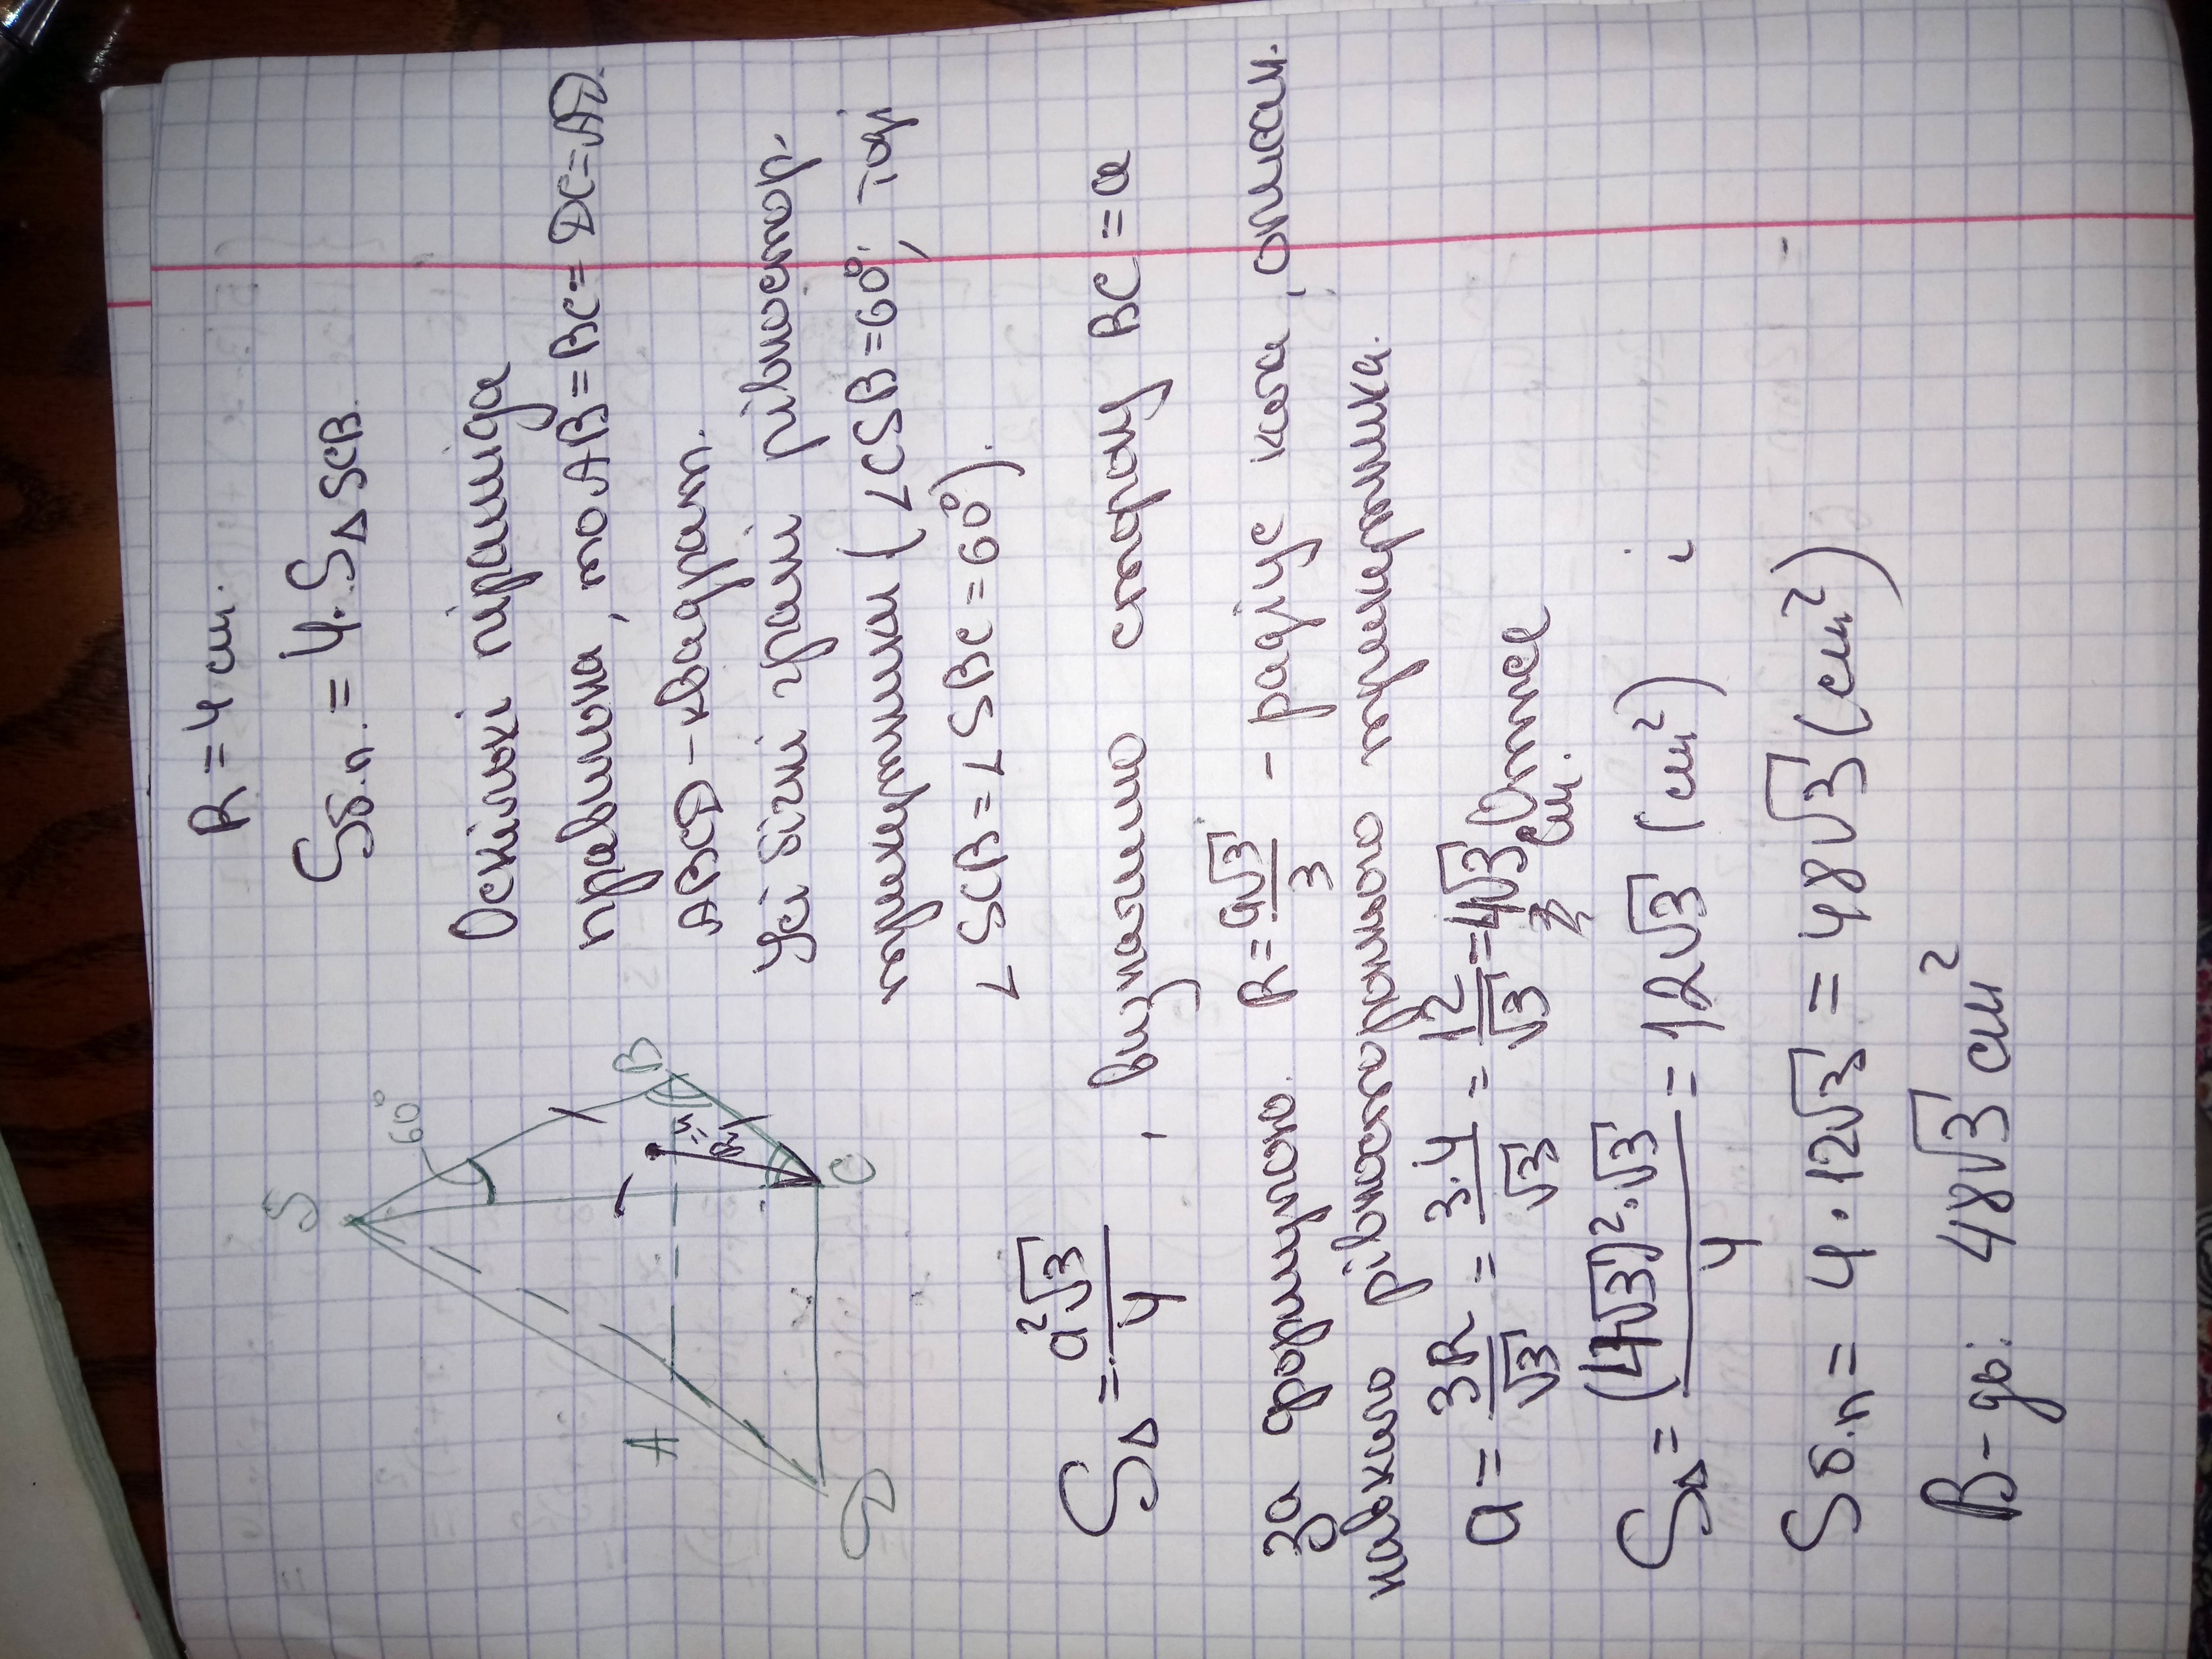 R = 4 см.
Sб.п. = 4·S△SCB.
S
60°
A
B
R=4
C
D
Оскільки піраміда
правильна, то AB=BC=DC=AD
ABCD – квадрат.
Усі бічні грані рівностор.
трикутники (∠CSB=60°, тоді
∠SCB=∠SBC=60°).
S△ = a²√3/4, визначимо сторону BC = a
за формулою. R = a√3/3 – радіус кола, описан.
навколо рівностороннього трикутника.
a = 3R/√3 = 3·4/√3 = 12/√3 = 4√3 см. Отже
S△ = (4√3)²·√3/4 = 12√3 (см²) і
Sб.п = 4·12√3 = 48√3 (см²)
В-дь: 48√3 см²